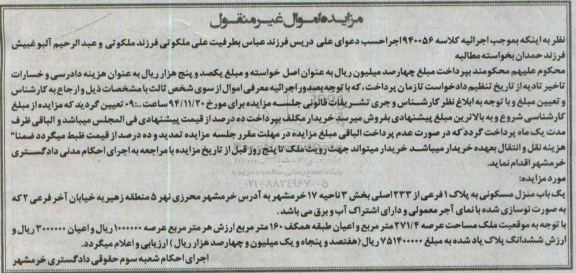 مزایده اموال غیر منقول
نظر به اینکه بموجب اجرائیه کلاسه 940056 اجرا حسب دعوای علی دریس فرزند عباس بطرفیت علی ملکوتی فرزند ملکوتی و عبدالرحیم آلبوغبیش فرزند حمدان بخواسته مطالبه
محکوم علیهم محکومند بپرداخت مبلغ چهارصد میلیون ریال به عنوان اصل خواسته و مبلغ یکصد و پنج هزار ریال به عنوان هزینه دادرسی و خسارات
تاخیر تادیه از تاریخ تنظیم دادخواست تا زمان پرداخت، که با توجه بصدور اجرائیه معرفی اموال از سوی شخص ثالث با مشخصات ذیل و ارجاع به کارشناس
و تعیین مبلغ و با توجه به ابلاغ نظر کارشناس و جری تشریفات قانونی جلسه مزایده برای مورخ 94/11/20 ساعت ..:09 تعیین گردید که مزایده از مبلغ
کارشناسی شروع و به بالاترین مبلغ پیشنهادی بفروش میرسد خریدار مکلف بپرداخت ده درصد از قیمت پیشنهادی فی المجلس میباشد و الباقی ظرف
مدت یک ماه پرداخت گردد که در صورت عدم پرداخت الباقی مبلغ مزایده در مهلت مقرر جلسه مزایده تمدید و ده درصد از قیمت ضبط میگردد ضمنا"
هزینه نقل و انتقال بعهده خریدار میباشد خریدار میتواند جهت رویت ملک تا پنج روز قبل از تاریخ مزایده با مراجعه به اجرای احکام مدنی دادگستری
خرمشهر اقدام نماید.
مورد مزایده:
یک باب منزل مسکونی به پلاک 1 فرعی از 233 اصلی بخش 3 ناحیه 17 خرمشهر به آدرس خرمشهر محرزی نهر 5 منطقه زهیریه خیابان آخر فرعی 2 که
به صورت نوسازی شده با نمای آجر معمولی و دارای اشتراک آب و برق می باشد.
با توجه به موقعیت ملک مساحت عرصه 271/4 متر مربع و اعیان طبقه همکف 160 متر مربع ارزش هر متر مربع عرصه 1000000 ریال و اعیان 3000000 ریال و
ارزش ششدانگ پلاک یاد شده به مبلغ 751400000 ریال (هفتصد و پنجاه و یک میلیون و چهارصد هزار ریال) ارزیابی و اعلام میگردد.
اجرای احکام شعبه سوم حقوقی دادگستری خرمشهر